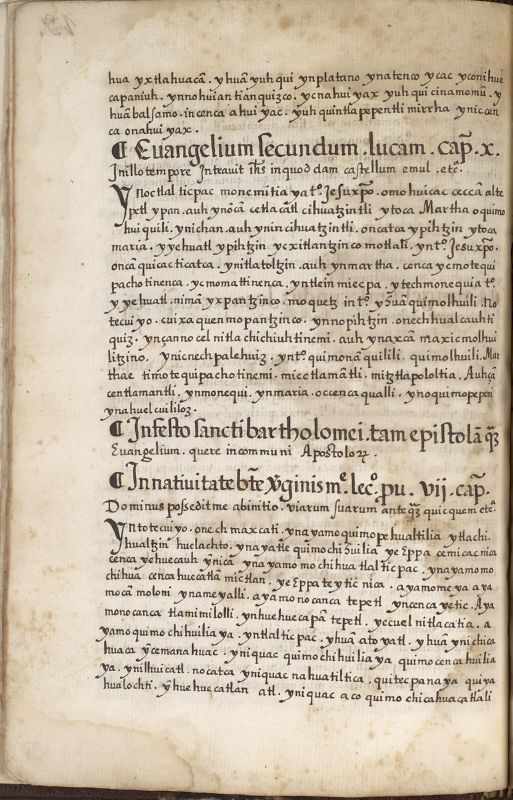 hua yxtlahuacā. yhuā yuh qui ynplatano ynatenco ycac yconihue
capaniuh. ynnohuian tianquizco. ycnahui yax yuh qui cinamomū. y
huā balsamo. in cenca ahui yac. yuh quintlapepentli mirrha ynic cen
ca onahui yax.
¶ Evangelium secundum. lucam. cap. x.
In illo tempore Intravit ihs in quod dam castellum emul. etc.
Ynoctlalticpac monemitia yn to. Jesu xpo. omohuicac ceccā alte
petl ypan. auh yn ōcā cetlacatl cihuatzintli ytoca Martha oquimo
hui quili. ynichan. auh ynin cihuatzintli. oncatca ypihtzin ytoca
maria. yyehuatl ypihtzin ycxitlantzinco motlali. yn to. Jesu xpo.
oncā quicacticatca. ynitlatoltzin. auh yn martha. cenca ycmotequi
pachotinenca. ycmomattinenca. yntlein miecpa. ytechmonequia to.
y yehuatl. nimā yxpantzinco. moquetz in to. yhuā quimolhuili. No
tecuiyo. cuix aquenmopantzinco. yn nopihtzin. onechhualcauhti
quiz. ynçanno cel nitlachichiuhtinemi. auh ynaxcā maxicmolhui
litzino. ynicnechpalehuiz. yn to. quimonāquilili. quimolhuili. Mar
thae timotequipachotinemi. miectlamātli. mitztlapololtia. Auh çā
centlamantli. ynmonequi. yn maria. occenca qualli. ynoquimopepeni
ynahuel cuililoz.
¶ In festo sancti bartholomei. tam epistolā q̄z
Evangelium. quere in communi Apostoloꝝ.
¶ In nativitate bte v̄ginis me. leco. pu. vij. cap.
Dominus possedit me ab initio. viarum suarum anteq̄z quic quem etc.
Yn totecuiyo. onechmaxcati. ynayamo quimopehualtilia ytlachi.
hualtzin huelachto. ynayatle quimochihuilia ye yppa cemicac nica
cenca yehuecauh ynicā. ynayamo mochihua tlalticpac. ynayamo mo
chihua cenca huecatlā mictlan. ye yppa teytic nica. ayamome ya aya
mocā moloni ynameyalli. ayamo nocanca tepetl yncenca yetic. Aya
monocanca tlamimilolli. ynhuehuecapā tepetl. yccuel nitlacatia. a
yamo quimochihuilia ya. yntlalticpac. yhuā atoyatl. yhuā ynichica
huaca ycemanahuac. yniquac quimochihuilia ya quimocencahuilia
ya. ynilhuicatl. nocatca yniquac nahuatiltica. quitecpanaya quiya
hualochti. yhuehuecatlan atl. yniquac aco quimochicahuacatlali